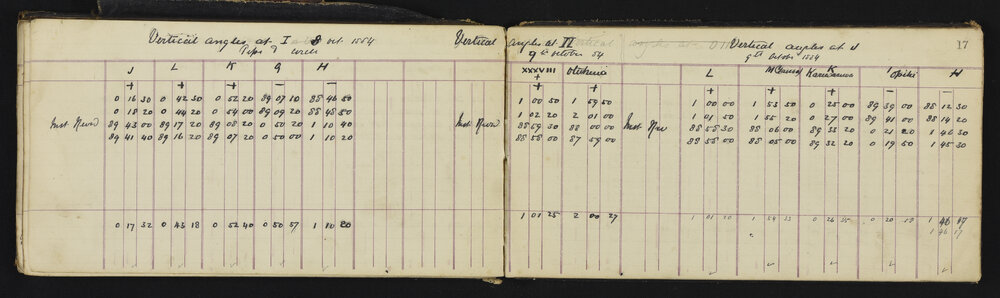 Vertical angles at I 8 Oct. 1884
Tops of
J L K G H
+ + + — —
0 16 30 0 42 30 0 52 20 89 07 10 88 46 50
0 18 20 0 44 20 0 54 00 89 09 20 88 48 50
Inst Revd 89 43 00 89 17 20 89 08 20 0 50 20 1 10 40
89 41 40 89 16 20 89 07 20 0 50 00 1 10 20
0 17 32 0 43 18 0 52 40 0 50 57 1 10 20
Vertical angles at II
9th October 84
XXXVIII
+ +
1 00 50 1 59 50
1 02 20 2 01 00
Inst Revd 88 59 30 88 00 00
88 58 00 87 59 00
1 01 25 2 00 27
Vertical angles at J
9th October 1884
17
L K H
+ + + — —
1 00 00 1 53 50 0 25 00 89 39 00 88 12 30
1 01 50 1 55 20 0 27 00 89 41 00 88 14 20
Inst Rev 88 58 30 88 06 00 89 33 20 0 21 20 1 46 30
88 58 00 88 05 00 89 32 20 0 19 50 1 45 30
1 01 20 1 54 33 0 26 35 0 20 1 46 17
1 46 17